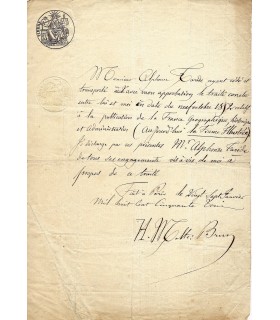 Monsieur Alphonse ayant cédé et
transporté avec mon approbation le traité conclu
entre lui et moi en date du neuf octobre 1852 relatif
à la publication de la France géographique, historique
et administrative (aujourd'hui la France Illustrée)
je décharge par ces présentes Mr. Alphonse
de tous ses engagements vis-à-vis de moi à
propos de ce traité.
Fait à Paris le Vingt Sept Janvier
Mil huit Cent Cinquante trois